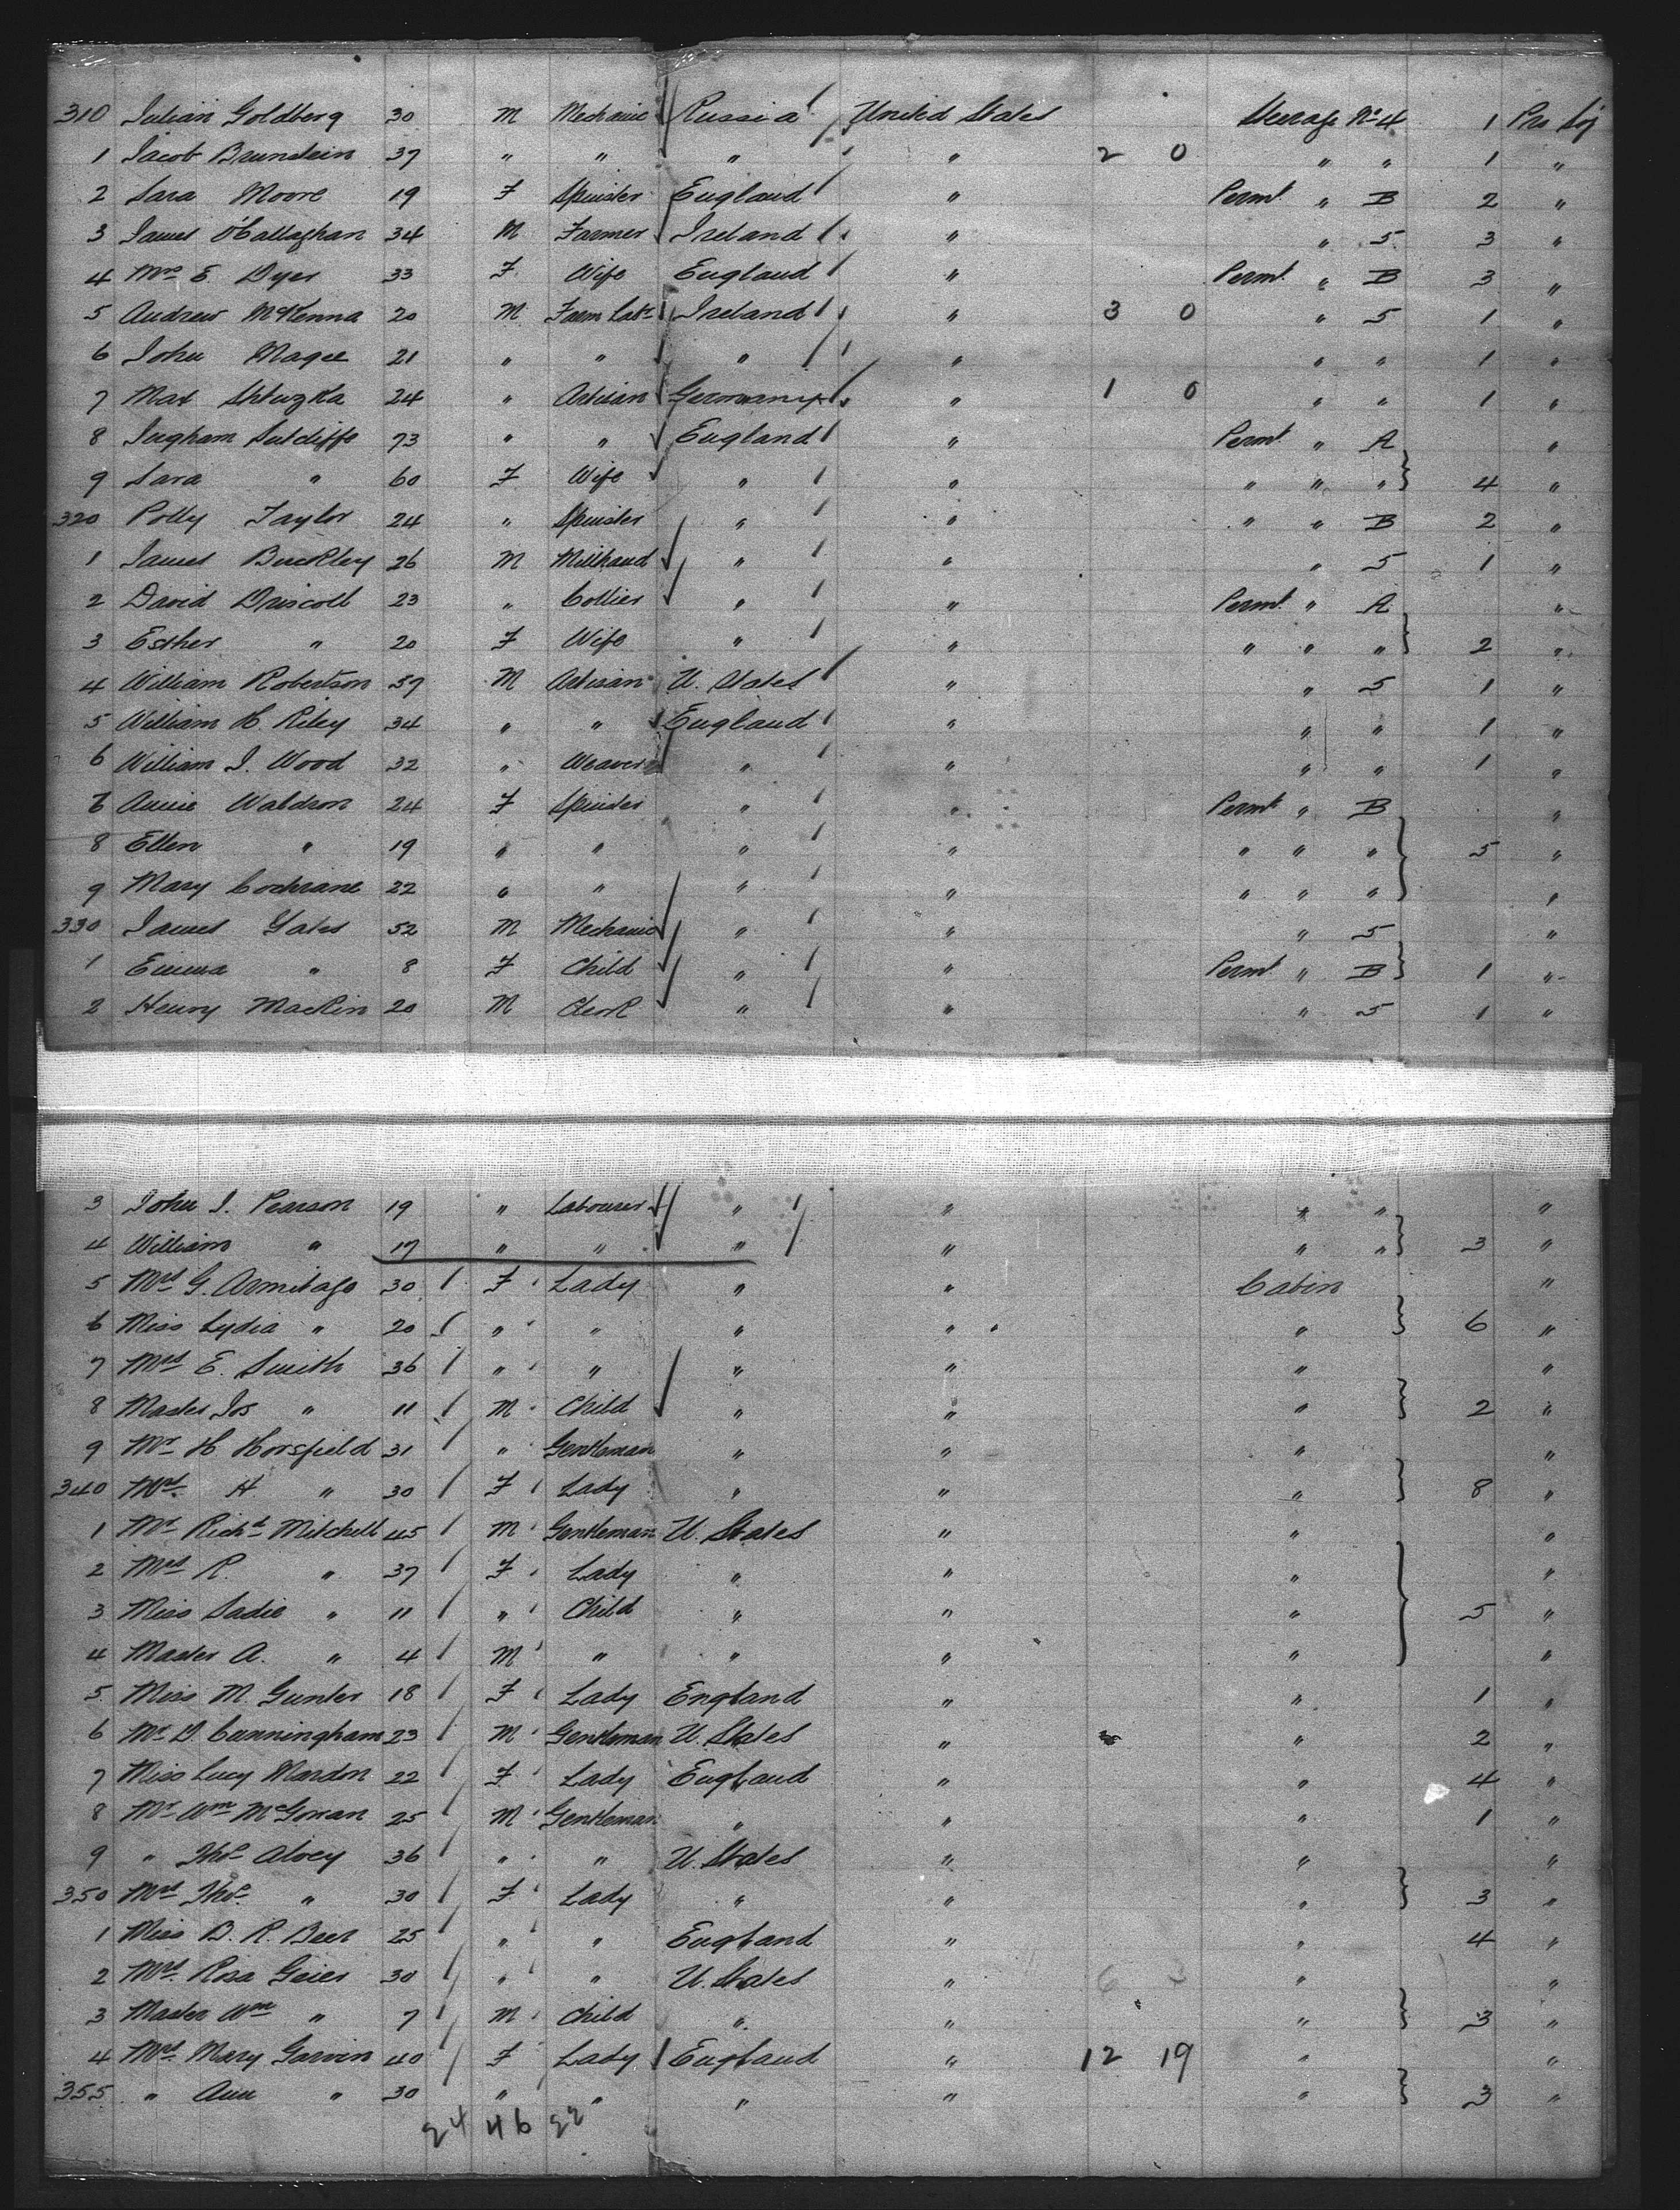 310 Julian Goldberg 30 M Mechanic Russia United States Steerage No 4 1 Pro Soj
1 Jacob Brunstein 37 " " " " 2 0 " " 1 "
2 Sara Moore 19 F Spinster England " Permt. " B 2 "
3 James O'Callaghan 34 M Farmer Ireland " " 5 3 "
4 Mrs E. Dyer 33 F Wife England " Permt. " B 3 "
5 Andrew McKenna 20 M Farm Labr Ireland " 3 0 " 5 1 "
6 John Magee 21 " " " " " " 1 "
7 Max 24 " Artisan Germany " 1 0 " " 1 "
8 Ingham Sutcliffe 73 " " England " Permt. " A "
9 Sara " 60 F Wife " " " " " 4 "
320 Polly Taylor 24 " Spinster " " " " B 2 "
1 James Buckley 26 M Millhand " " " 5 1 "
2 David Driscoll 23 " Collier " " Permt. " A "
3 Esther " 20 F Wife " " " " " 2 "
4 William Robertson 59 M Artisan U. States " " 5 1 "
5 William H. Riley 34 " " England " " " 1 "
6 William J. Wood 32 " Weaver " " " " 1 "
7 Annie Waldron 24 F Spinster " " Permt " B "
8 Ellen " 19 " " " " " " " 5 "
9 Mary Cochrane 22 " " " " " " " "
330 James Yates 52 M Mechanic " " " 5 "
1 Emma " 8 F Child " " Permt. " B 1 "
2 Henry Mackin 20 M Clerk " " " 5 1 "
3 John J. Pearson 19 " Labourer " " " " "
4 William " 17 " " " " " " 3 "
5 Mrs G. Armitage 30 F Lady " " Cabin "
6 Miss Lydia " 20 " " " " " 6 "
7 Mrs E. Smith 36 " " " " " "
8 Master Jos " 11 M Child " " " 2 "
9 Mr H Horsfield 31 " Gentleman " " " "
340 Mrs. H " 30 F Lady " " " 8 "
1 Mr Richd Mitchell 45 M Gentleman U. States " " "
2 Mrs R. " 37 F Lady " " " "
3 Miss Sadie " 11 " Child " " " 5 "
4 Master A. " 4 M " " " " "
5 Miss M. Gunter 18 F Lady England " " 1 "
6 Mr D. Cunningham 23 M Gentleman U. States " " 2 "
7 Miss Lucy Mardon 22 F Lady England " " 4 "
8 Mr Wm McGowan 25 M Gentleman " " " 1 "
9 " Thos Alvey 36 " " U. States " " "
350 Mrs Thos " 30 F Lady " " " 3 "
1 Miss B. R. Beer 25 " " England " " 4 "
2 Mrs. Rosa Geier 30 " " U. States " " "
3 Master Wm " 7 M Child " " " 3 "
4 Mrs. Mary Garvin 40 F Lady England " 12 19 " "
355 " Ann " 30 " " " " " 3 "
24 46 22